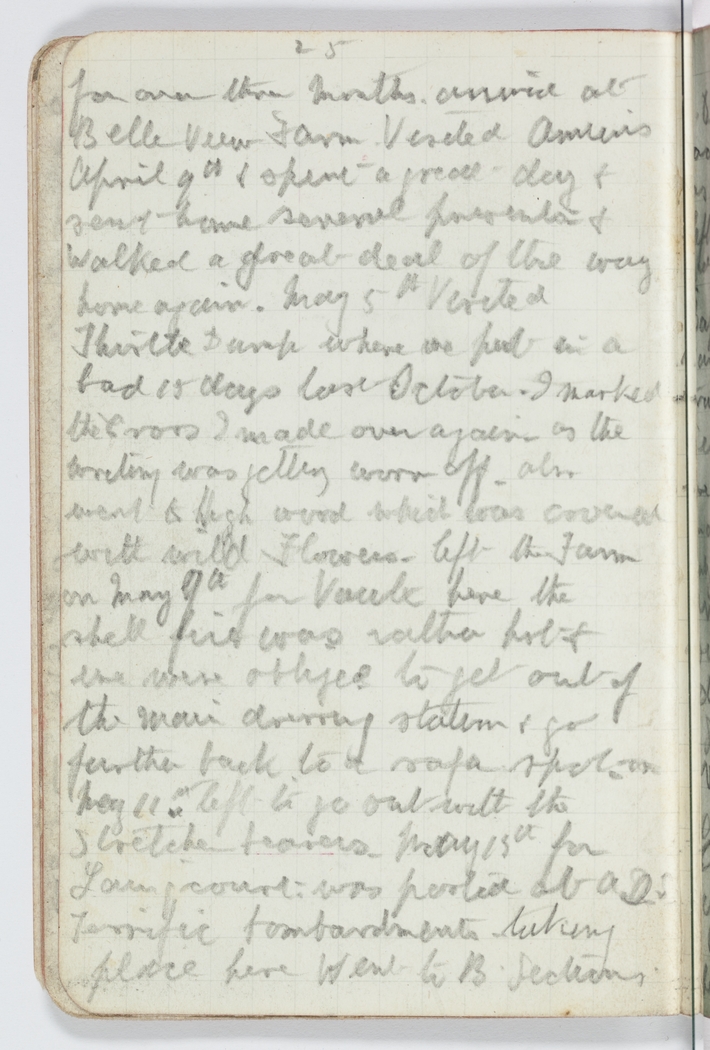 25
for over three Months. arrived at
Belle View Farm Visited Amiens
April 9th & spent a great day &
sent home several presents &
Walked a great deal of the way
home again. May 5th Visited
Thistle Dump where we put in a
bad 15 days last October. I marked
the Cross I made over again as the
writing was getting worn off. also
went to High wood which was covered
with wild Flowers. left the Farm
on May 9th for Vaulx here the
shell fire was rather hot &
we were obliged to get out of
the main dressing station & go
further back to a safer spot. on
May 11th left to go out with the
Stretcher bearers. May 15th for
was posted at A.D.
Terrific bombardments taking
place here Went to B Section